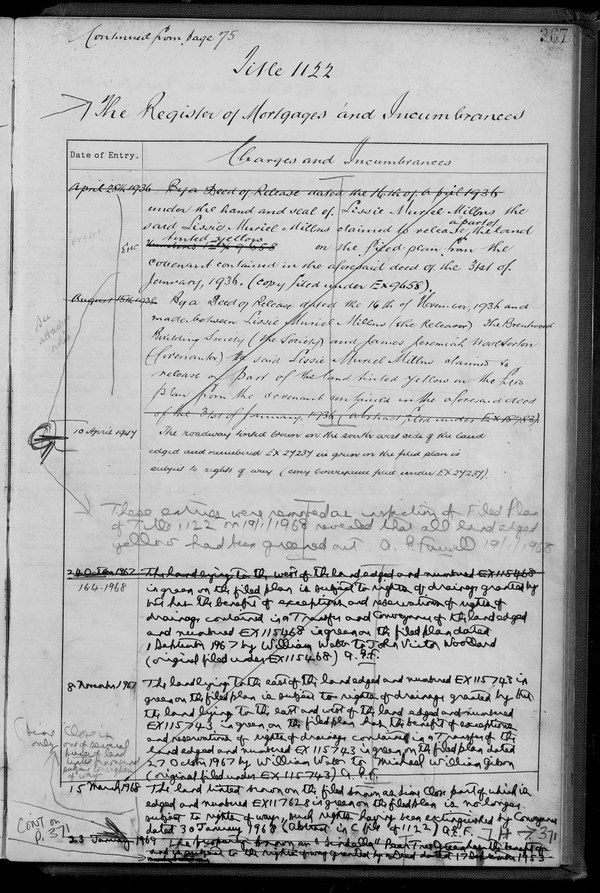 Continued from page 75
367
Title 1122
The Register of Mortgages and Incumbrances
Date of Entry.
Charges and Incumbrances
April 25th 1936 By a Deed of Release dated the 16th of April 1936
under the hand and seal of Lissie Muriel Millens the
said Lissie Muriel Millens claimed to release a part of the land
tinted yellow on the filed plan from the
covenant contained in the aforesaid deed of the 31st of
January, 1936. (copy filed under EX9658).
August 18th 1936 By a Deed of Release dated the 16th of November, 1936 and
made between Lissie Muriel Millens (the Releasor) The Brentwood
Building Society (the Society) and James Jeremiah
(Covenantor) the said Lissie Muriel Millens claimed to
release a part of the land tinted yellow on the filed
plan from the covenant contained in the aforesaid deed
of the 31st of January, 1936 (abstract filed under
10 April 1947 The roadway tinted brown on the south west side of the land
edged and numbered EX27237 in green on the filed plan is
subject to rights of way (copy conveyance filed under EX27237).
These entries were removed as inspection of Filed Plan
of Title 1122 on 19/1/1968 revealed that all land edged
yellow had been greened out 19/1/1968
24 October 1967 The land lying to the west of the land edged and numbered EX115468
16.4.1968 in green on the filed plan is subject to rights of drainage granted by
but has the benefit of exceptions and reservations of rights of
drainage contained in a Transfer and Conveyance of the land edged
and numbered EX115468 in green on the filed plan dated
1 September 1967 by William Webb to John Victor Woodland
(original filed under EX115468)
8 November 1967 The land lying to the east of the land edged and numbered EX115743 in
green on the filed plan is subject to rights of drainage granted by but
the land lying to the east and west of the land edged and numbered
EX115743 in green on the filed plan has the benefit of exceptions
and reservations of rights of drainage contained in a Transfer of the
land edged and numbered EX115743 in green on the filed plan dated
27 October 1967 by William Webb to Michael William Gibson
(original filed under EX115743)
15 March 1968 The land tinted brown on the filed plan Close part of which is
edged and numbered EX117628 in green on the filed plan is no longer
subject to rights of way, such rights having been extinguished by Conveyance
dated 30 January 1968 (Abstract in C file of 1122)
Cont on
P. 371
23 January 1969 The property known as Peartree Green has the benefit of
and is subject to the rights of way granted by a Deed dated 17 December 1953